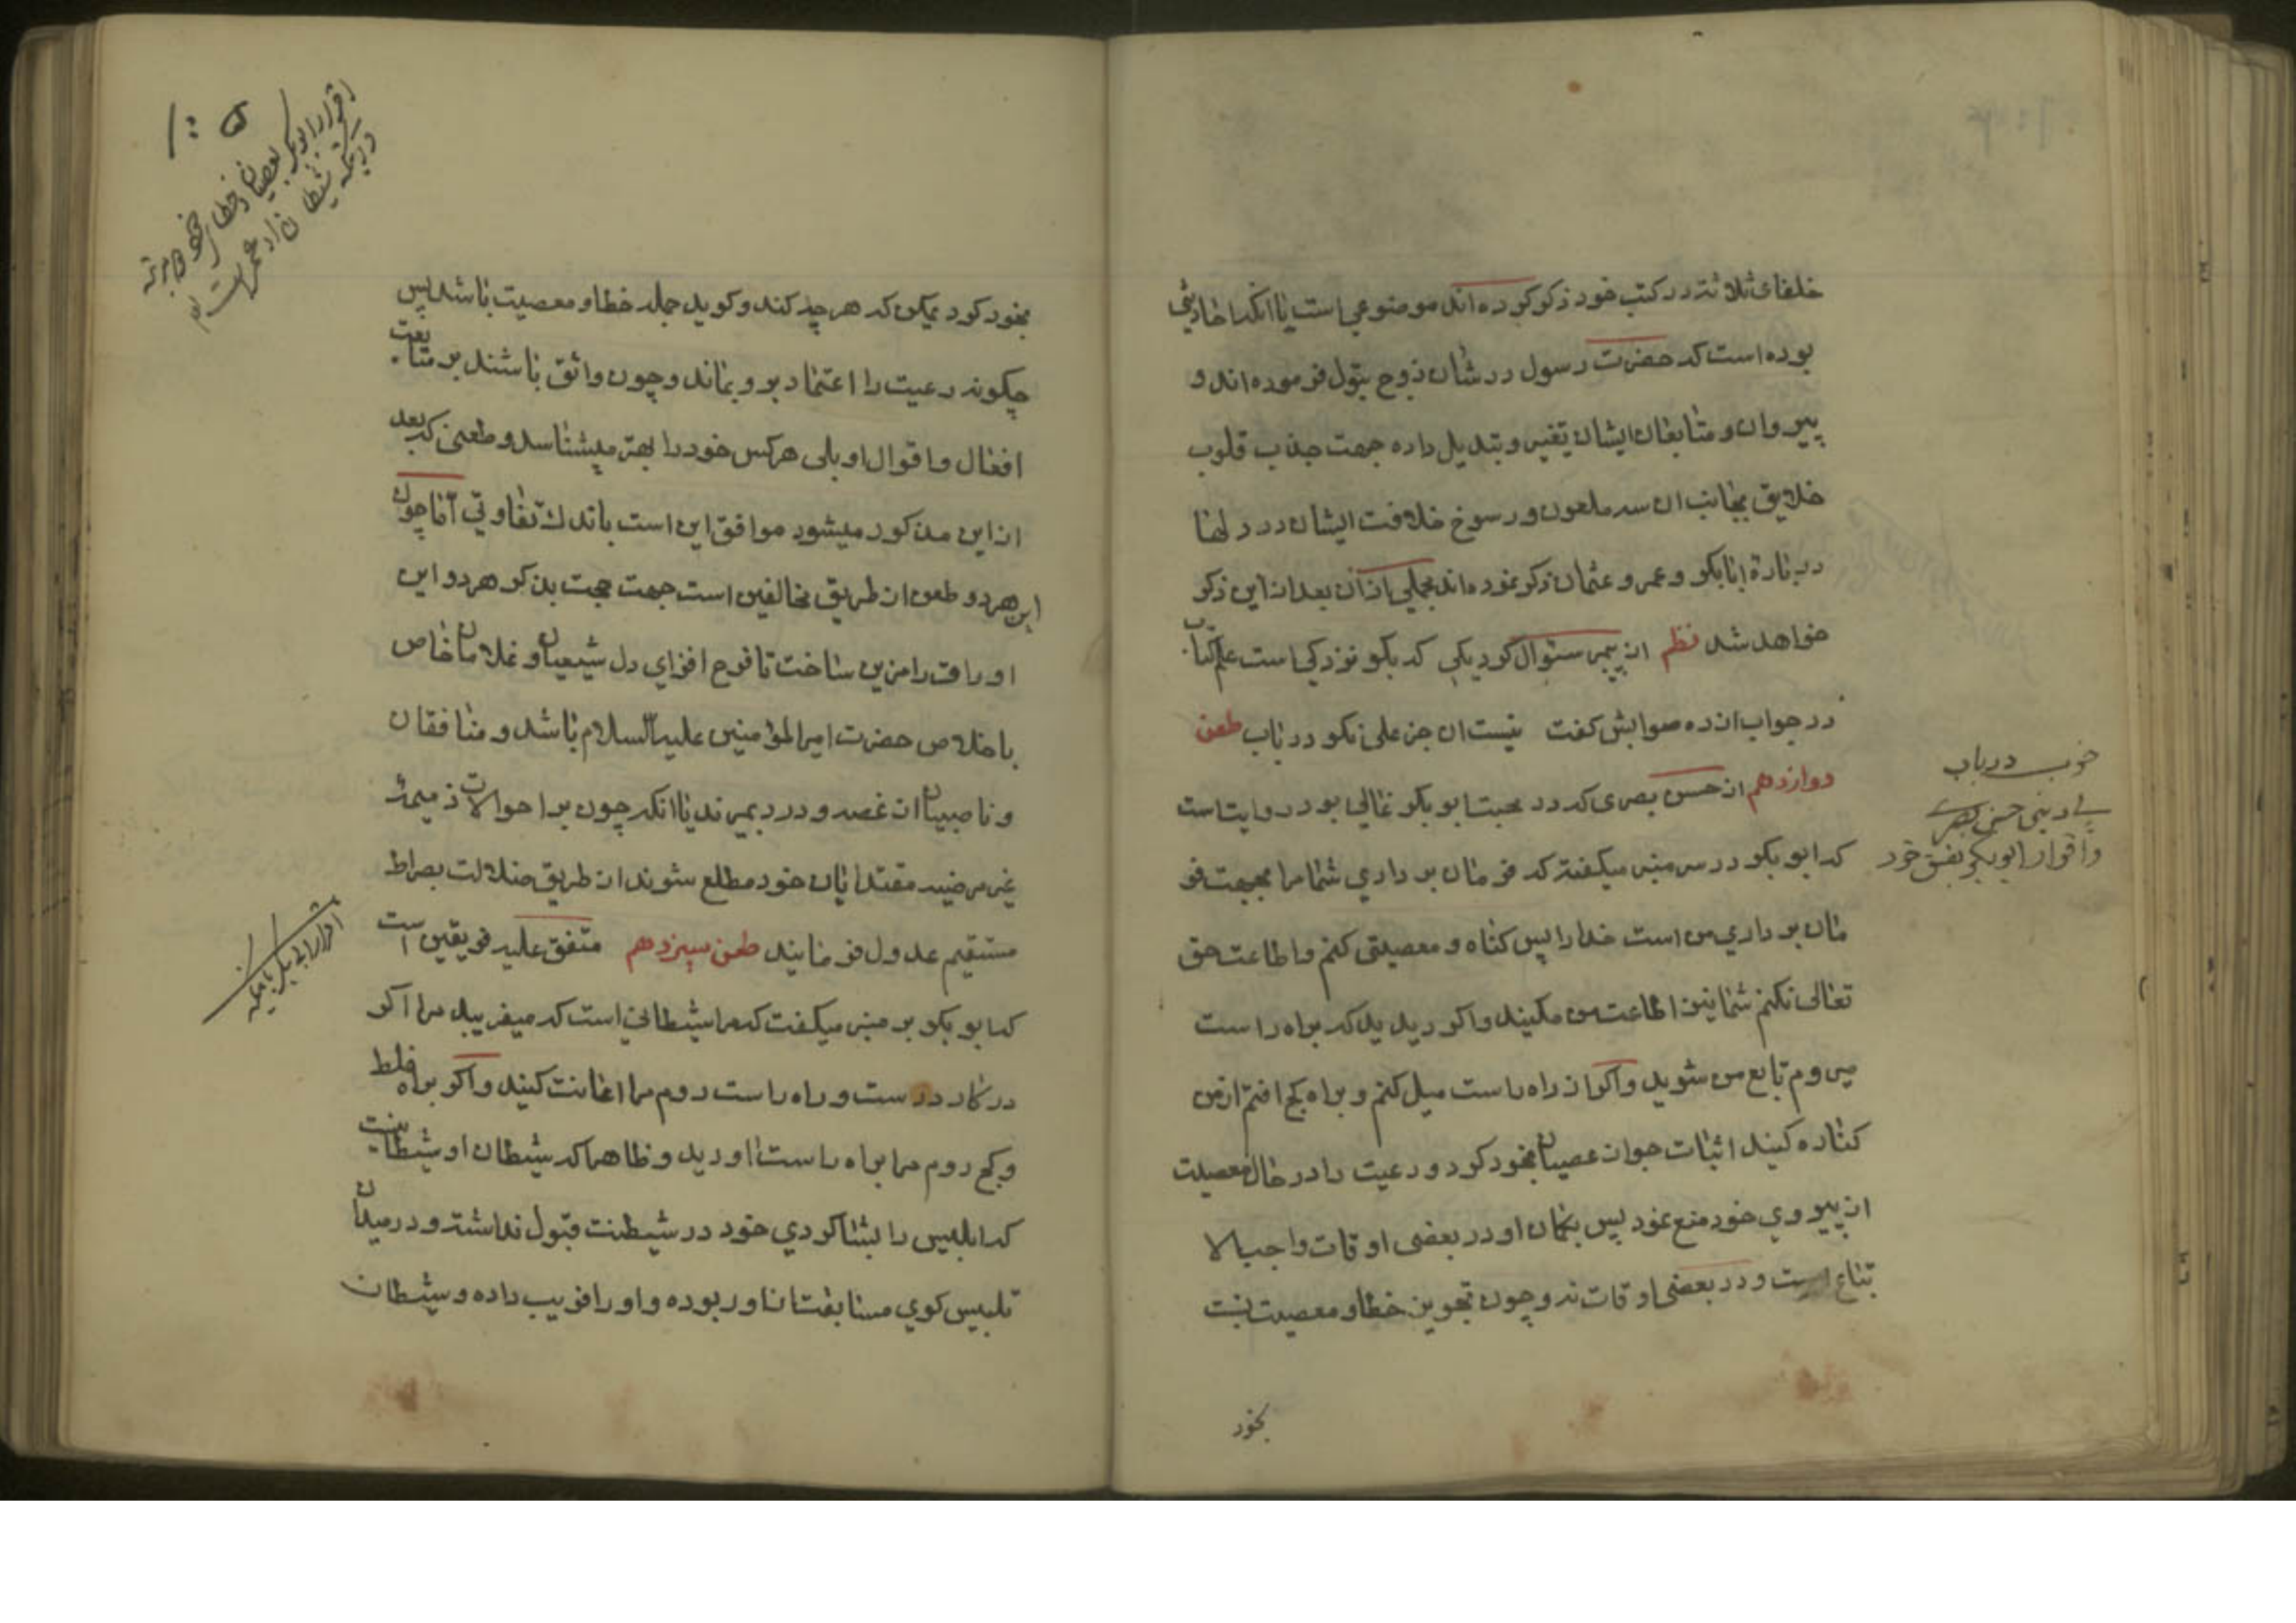 خلفای ثلاثه در کتب خود ذکر کرده اند موضوعی است یا انکه احادیثی
بوده است که حضرت رسول در شان زوج بتول فرموده اند و
پیروان و متابعان ایشان تغیر و تبدیل داده جهت جذب قلوب
خلایق بجانب ان سه ملعون و رسوخ خلافت ایشان در دلها
در بارۀ ابابکر و عمر و عثمان ذکر نموده اند مجملی از ان بعد از این ذکر
خواهد شد نظم از پیر سئوال کرد یکی که بکو نزد کی است علم کتاب
در جواب از ده صوابش کفت نیست ان جز علی نکو دریاب طعن
دوازدهم از حسن بصری که در محبت ابو بکر غالی بود روایت است
که ابو بکر در سر منبر میکفته که فرمان برداری شما مرا بجهت فر
مان برداری من است خدا را پس کناه و معصیتی کنم و اطاعت حق
تعالی نکنم شما نیز اطاعت من مکنید و اکر دیدید که براه راست
میروم تابع من شوید و اکر از راه راست میل کنم و براه کج افتم از من
کناره کنید اثبات جواز عصیان بخود کرد و رعیت را در حال معصیت
از پیروی خود منع نمود پس بکمان او در بعضی اوقات واجب الا
تباع است و در بعضی اوقات نه و چون تجویز خطا و معصیت نسبت
بخود
خوب دریاب
بی دینی حسن بصری
و اقرار ابو بکر بفسق خود
۱۰۵
اقرار ابو بکر
بعصیان و خطای خود
بخود کرد ممکن که هر چه کند و کوید جمله خطا و معصیت باشد پس
چکونه رعیت را اعتماد بر و بماند و چون واثق باشند بر متابعت
افعال و اقوال او بلی هر کس خود را بهتر میشناسد و طعنی که بعد
از این مذکور میشود موافق این است باندک تفاوتی اما چون
این هر دو طعن از طریق مخالفین است جهت حجت بذکر هر دو این
اوراق را مزین ساخت تا فرح افزای دل شیعیان و غلامان خاص
باخلاص حضرت امیر المؤمنین علیه السلام باشد و منافقان
و ناصبیان از غصه و درد بمیرند یا انکه چون بر احوالات ذمیمۀ
غیر مرضیه مقتدایان خود مطلع شوند از طریق ضلالت بصراط
مستقیم عدول فرمایند طعن سیزدهم متفق علیه فریقین است
که ابو بکر بر منبر میکفت که مرا شیطانی است که میفریبد مرا اکر
در کار درست و راه راست روم مرا اعانت کنید و اکر براه غلط
و کج روم مرا براه راست اورید و ظاهرا که شیطان او شیطانیت
که ابلیس را بشاکردی خود در شیطنت قبول نداشته و در میدان
تلبیس کوی مسابقت از او ربوده و او را فریب داده و شیطان
اقرار ابی بکر بانکه